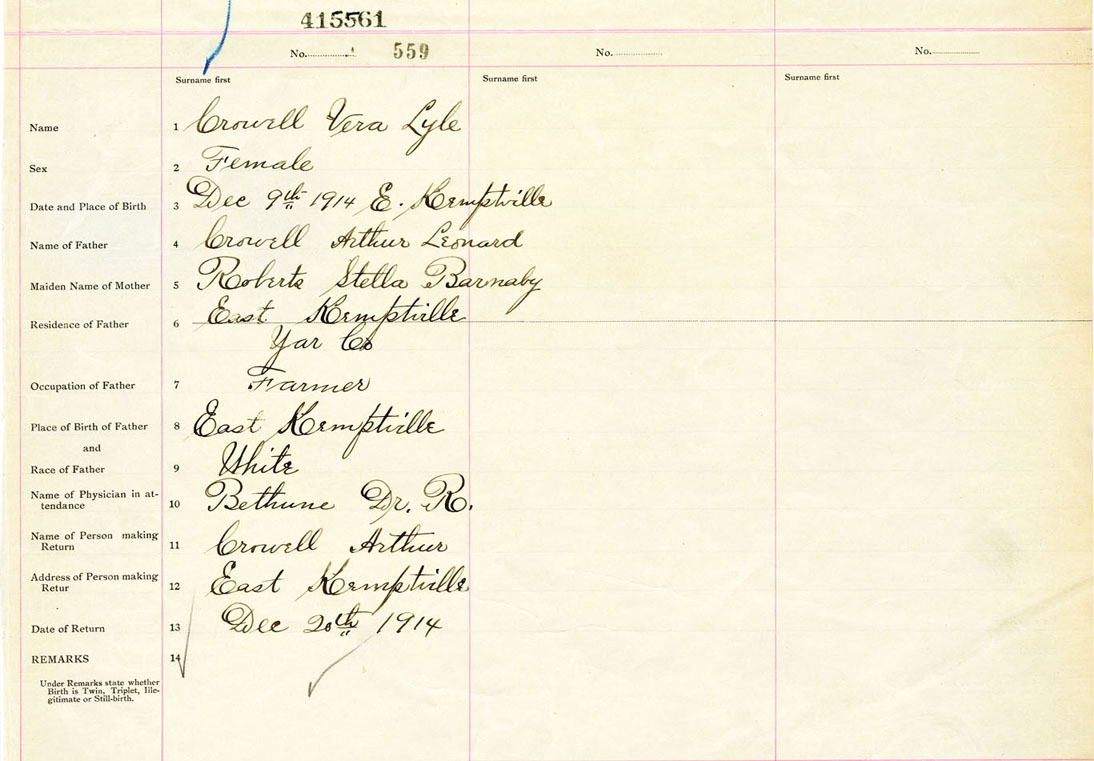 415561
No. 559 No. No.
Surname first Surname first Surname first
Name 1 Crowell Vera Lyle
Sex 2 Female
Date and Place of Birth 3 Dec 9th 1914 E. Kemptville
Name of Father 4 Crowell Arthur Leonard
Maiden Name of Mother 5 Roberts Stella Barnaby
Residence of Father 6 East Kemptville
Yar Co
Occupation of Father 7 Farmer
Place of Birth of Father 8 East Kemptville
and
Race of Father 9 White
Name of Physician in at-
tendance 10 Bethune Dr. R.
Name of Person making
Return 11 Crowell Arthur
Address of Person making
Retur 12 East Kemptville
Date of Return 13 Dec 20th 1914
REMARKS 14
Under Remarks state whether
Birth is Twin, Triplet, Ille-
gitimate or Still-birth.